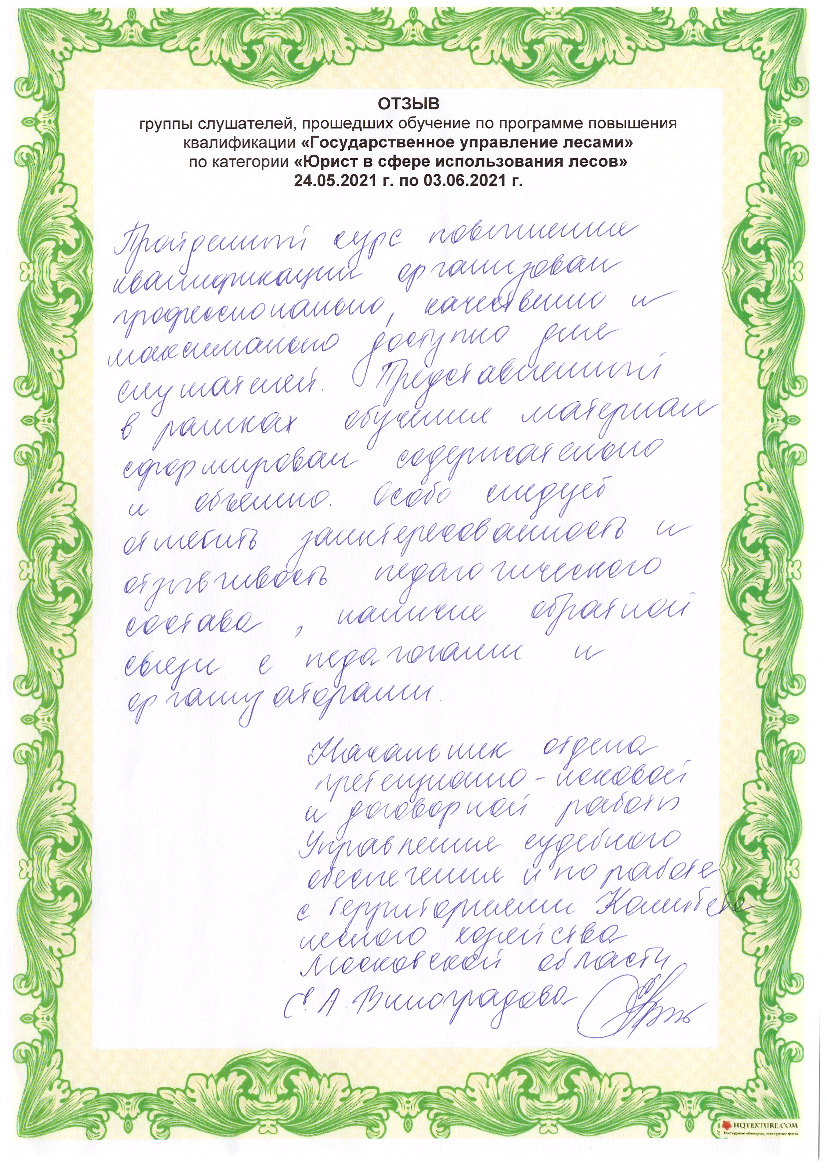 ОТЗЫВ
группы слушателей, прошедших обучение по программе повышения
квалификации «Государственное управление лесами»
по категории «Юрист в сфере использования лесов»
24.05.2021 г. по 03.06.2021 г.
Пройденный курс повышения
квалификации организован
профессионально, качественно и
максимально доступно для
слушателей. Представленный
в рамках обучения материал
сформирован содержательно
и объемно. Особо следует
отметить заинтересованность и
отзывчивость педагогического
состава, наличие обратной
связи с педагогами и
организаторами.
Начальник отдела
претензионно-исковой
и договорной работы
Управления судебного
обеспечения и по работе
с территориями Комитета
лесного хозяйства
Московской области
С.А. Виноградова
HQTEXTURE.COM